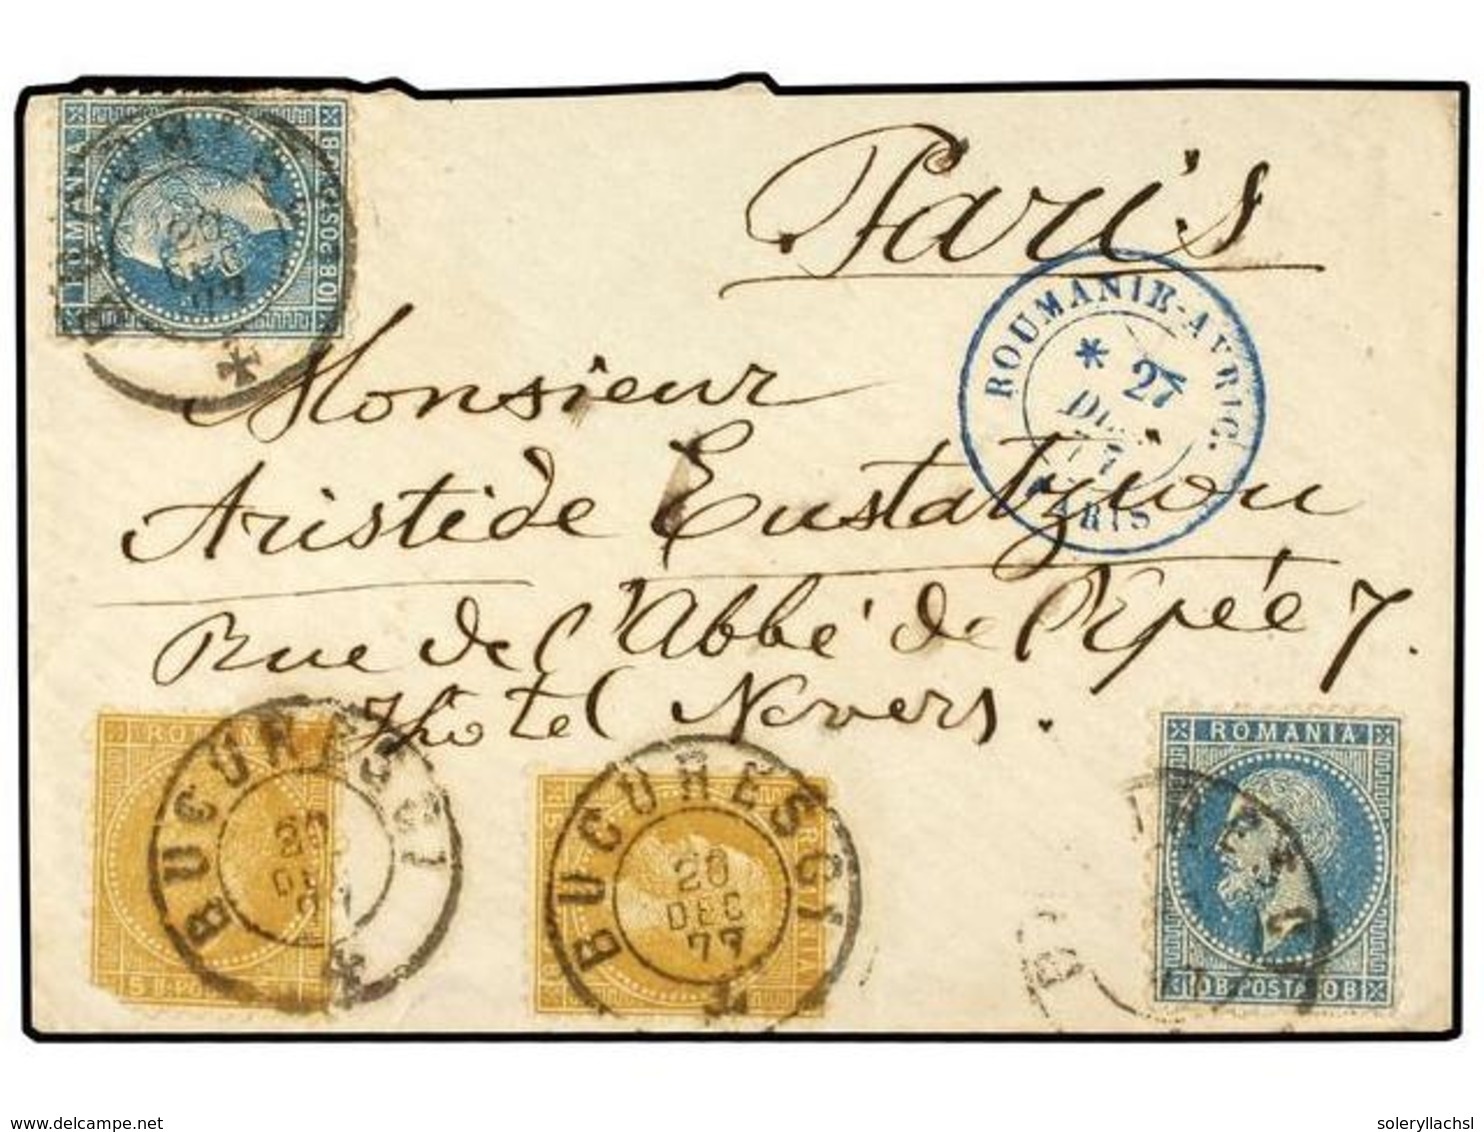 ROMANIA
10 B. POSTA 10 B
20
DEC
77
Paris
ROUMANIE-AVRIC.
* 27
77
PARIS
Monsieur
Aristide Eustatziou
Rue de l'Abbé de l'Epée 7.
Hôtel Nevers.
ROMANIA
5 B. PO
BUCURESCI
20
DEC
77
BUCURESCI
20
DEC
77
ROMANIA
10 B. POSTA 10 B
delcampe.net
soleryllachsl